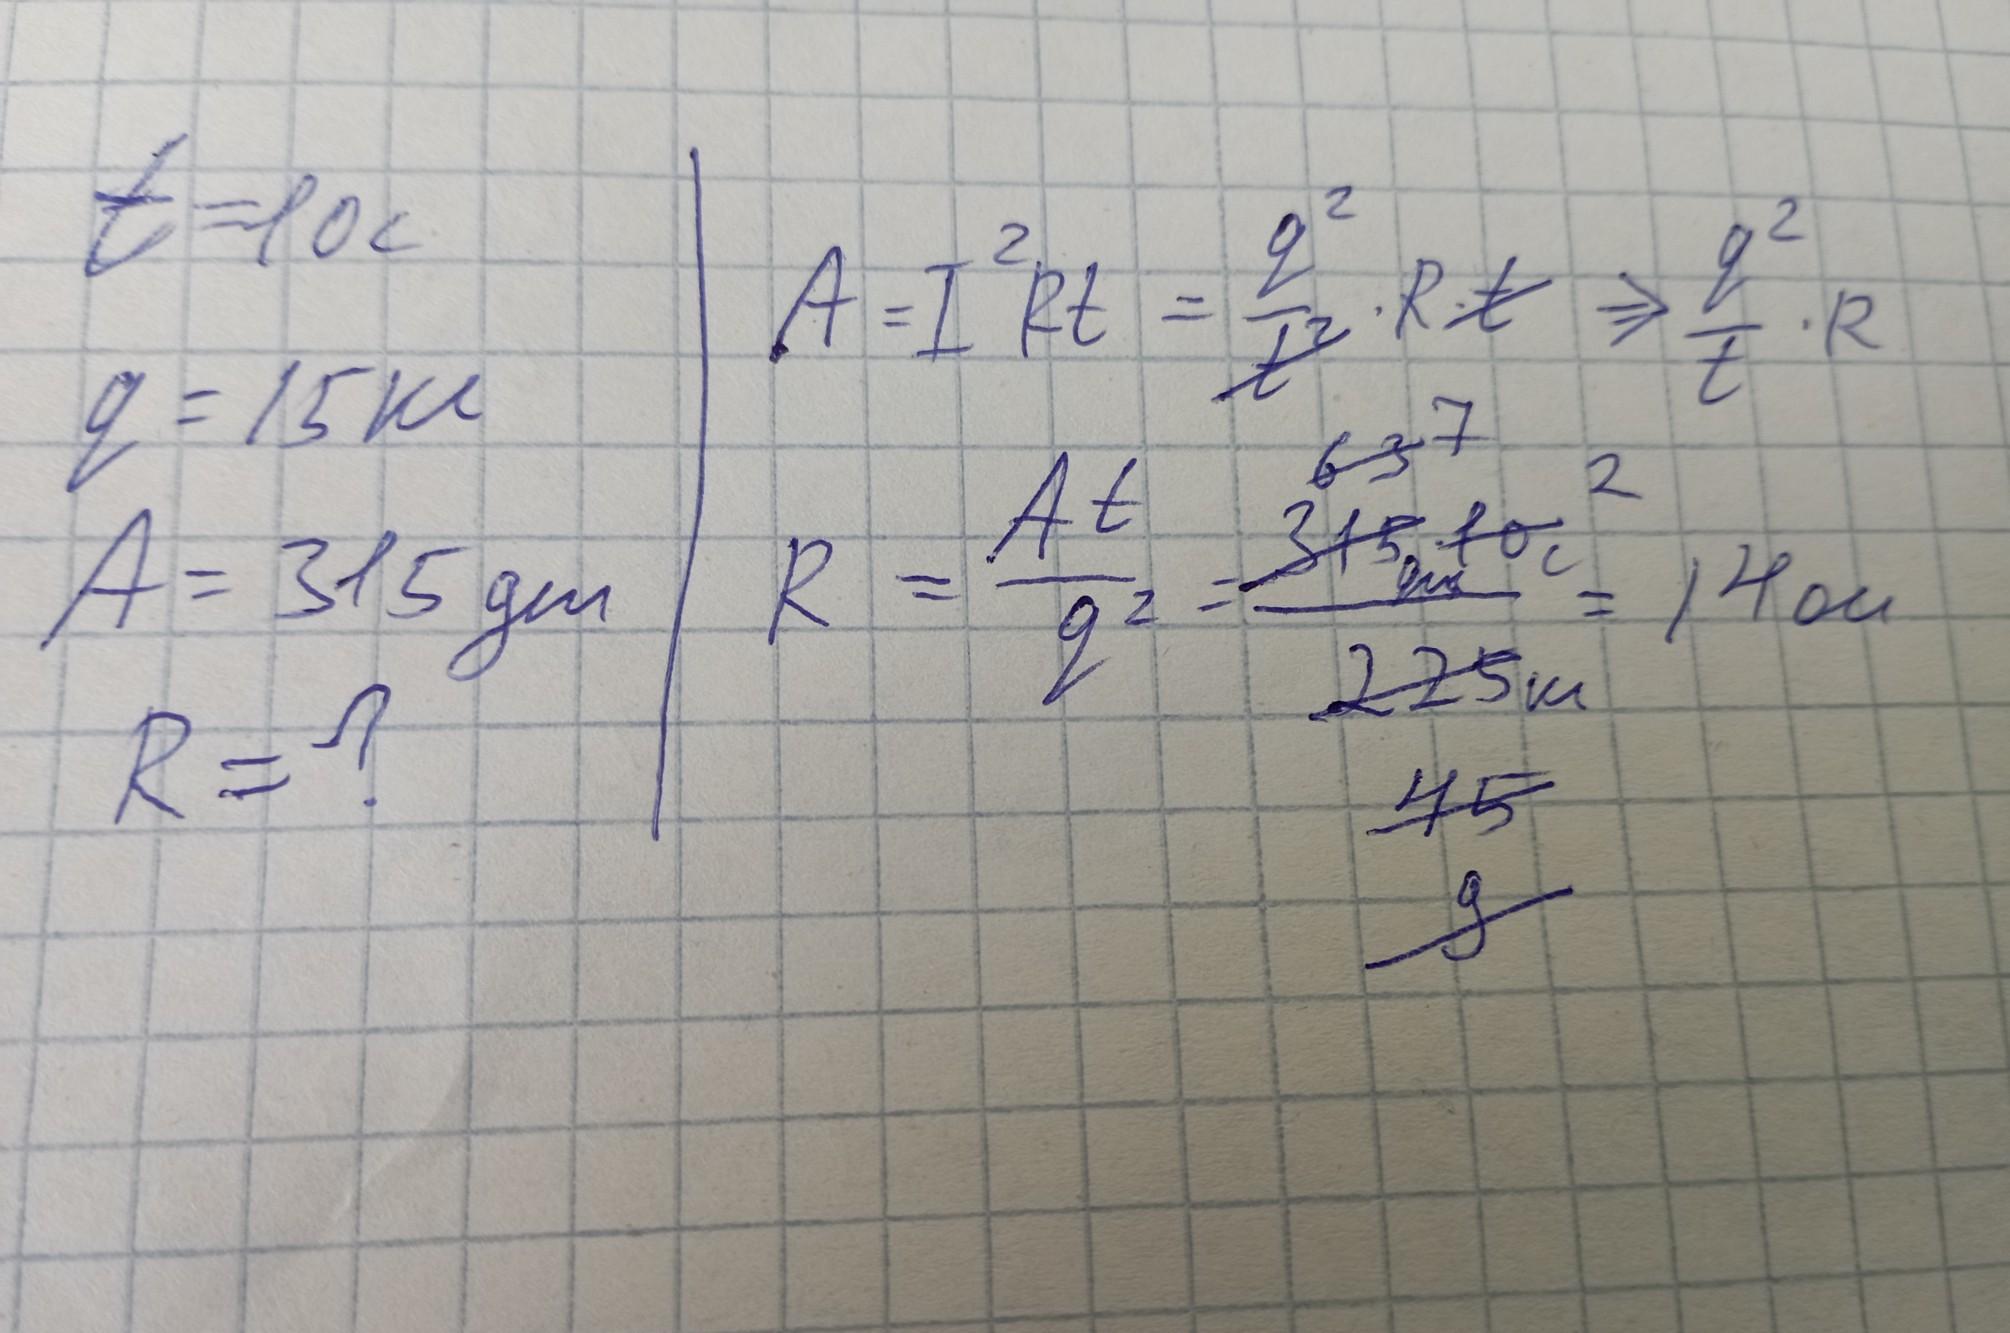 t=10с
q=15кл
A=315дж
R=?
A=I²Rt=q²/t²·R·t⇒q²/t·R
R=At/q²=315дж·10с/225кл=14ом
63 7
2
45
9